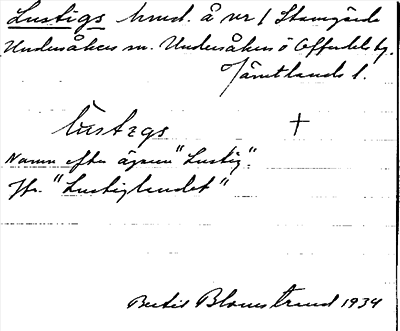 Lustigs hmd. å nr 1 Stamgärde
Undersåkers sn. Undersåkers o Offerdals tg.
Jämtlands l.
lùstegs +
Namn efter ägaren "Lustig".
Jfr. "Lustiglandet"
Bertil Blomstrand 1934